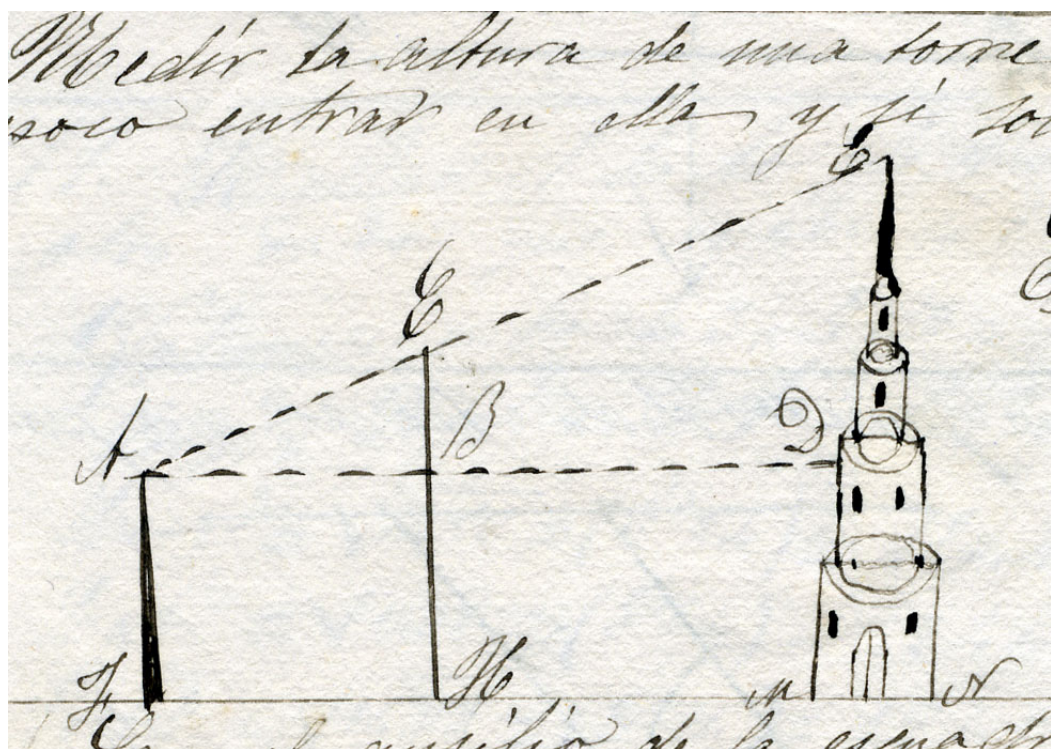 Medir la altura de una torre
poco entrar en ella y si so
C
E
A
B
D
F
H
M
N
el ausilio de la escuadr